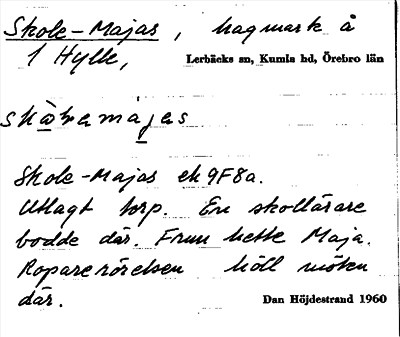 Skole-Majas, hagmark å
1 Hylle, Lerbäcks sn, Kumla hd, Örebro län
Skole-Majas ek 9F8a.
Utlagt torp. En skollärare
bodde där. Frun hette Maja.
Roparerörelsen höll möten
där.
Dan Höjdestrand 1960